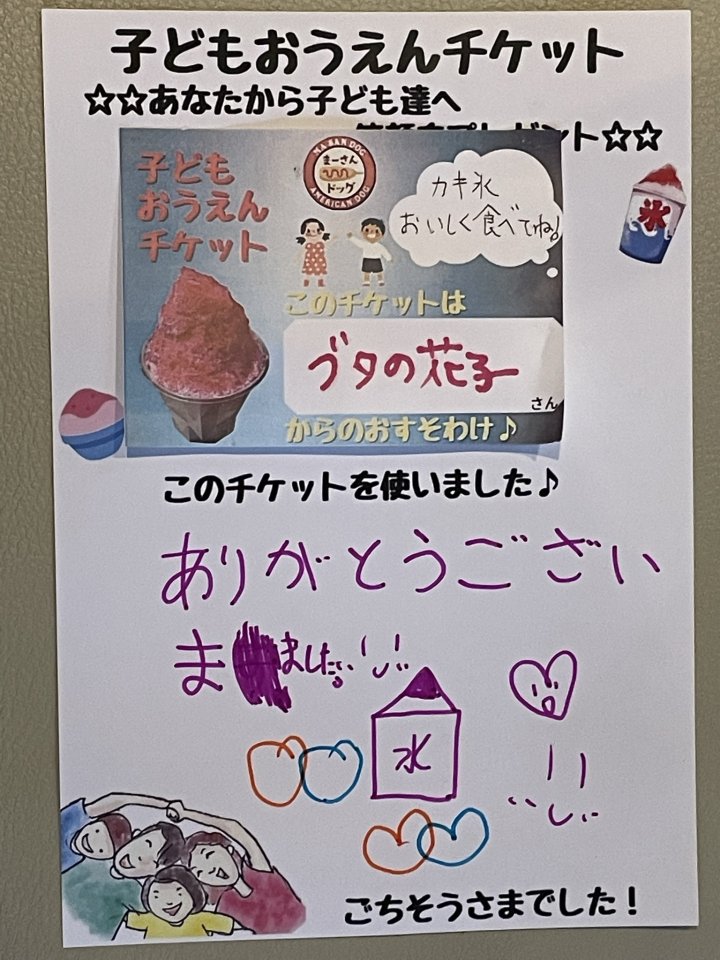 子どもおうえんチケット
☆☆あなたから子ども達へ
プレゼント☆☆
子ども
おうえん
チケット
MASAN DOG
まーさん
ドッグ
AMERICAN DOG
カキ氷
おいしく食べてね♪
氷
このチケットは
ブタの花子
さん
からのおすそわけ♪
このチケットを使いました♪
ありがとうござい
ま
ました
氷
ごちそうさまでした!